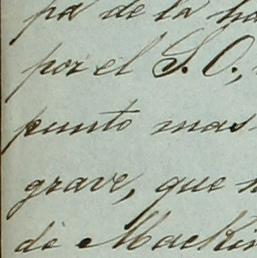 pa de la ha
por el S. O.,
punto mas
grave, que
de Mackin